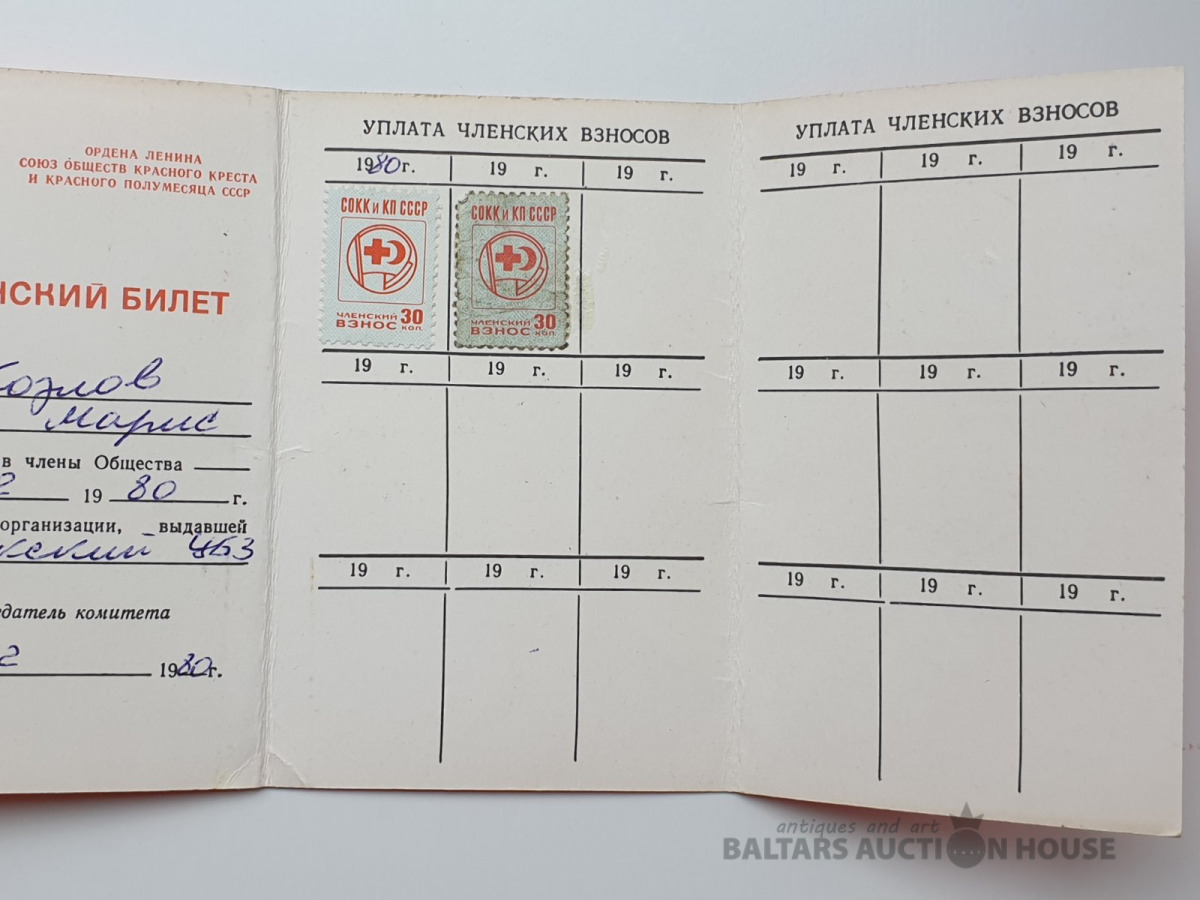 ОРДЕНА ЛЕНИНА
СОЮЗ ОБЩЕСТВ КРАСНОГО КРЕСТА
И КРАСНОГО ПОЛУМЕСЯЦА СССР
НСКИЙ БИЛЕТ
Козлов
Марис
в члены Общества
2 1980 г.
организации, выдавшей
жский ЦБЗ
датель комитета
2 1980г.
УПЛАТА ЧЛЕНСКИХ ВЗНОСОВ
1980г. 19 г. 19 г.
СОКК и КП СССР
ЧЛЕНСКИЙ
ВЗНОС 30 КОП.
СОКК и КП СССР
ЧЛЕНСКИЙ
ВЗНОС 30 КОП.
19 г. 19 г. 19 г.
19 г. 19 г. 19 г.
УПЛАТА ЧЛЕНСКИХ ВЗНОСОВ
19 г. 19 г. 19 г.
19 г. 19 г. 19 г.
19 г. 19 г. 19 г.
antiques and art
BALTARS AUCTION HOUSE